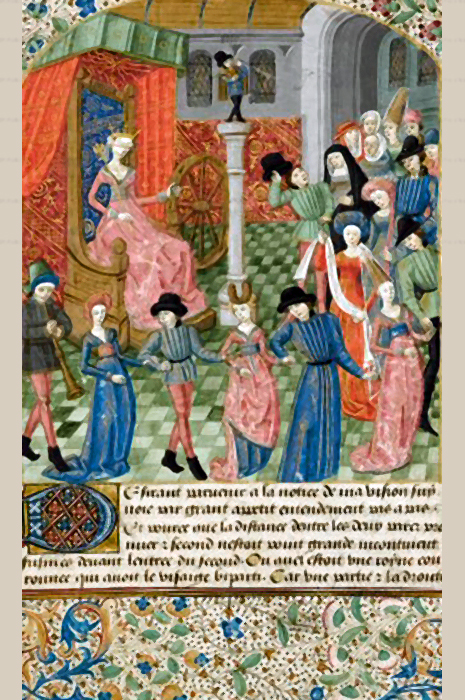 Esirant paruenir a la notice de ma vision suy
uoie par grant apetit entendement pas a pas
Et pource que la distance dentre les deux parez pre
mier & second nestoit point grande incontinent
fusmes deuant lentree du second. Ou quel estoit vne royne cou
ronnee qui auoit le visaige biparti. Car vne partie & la droite